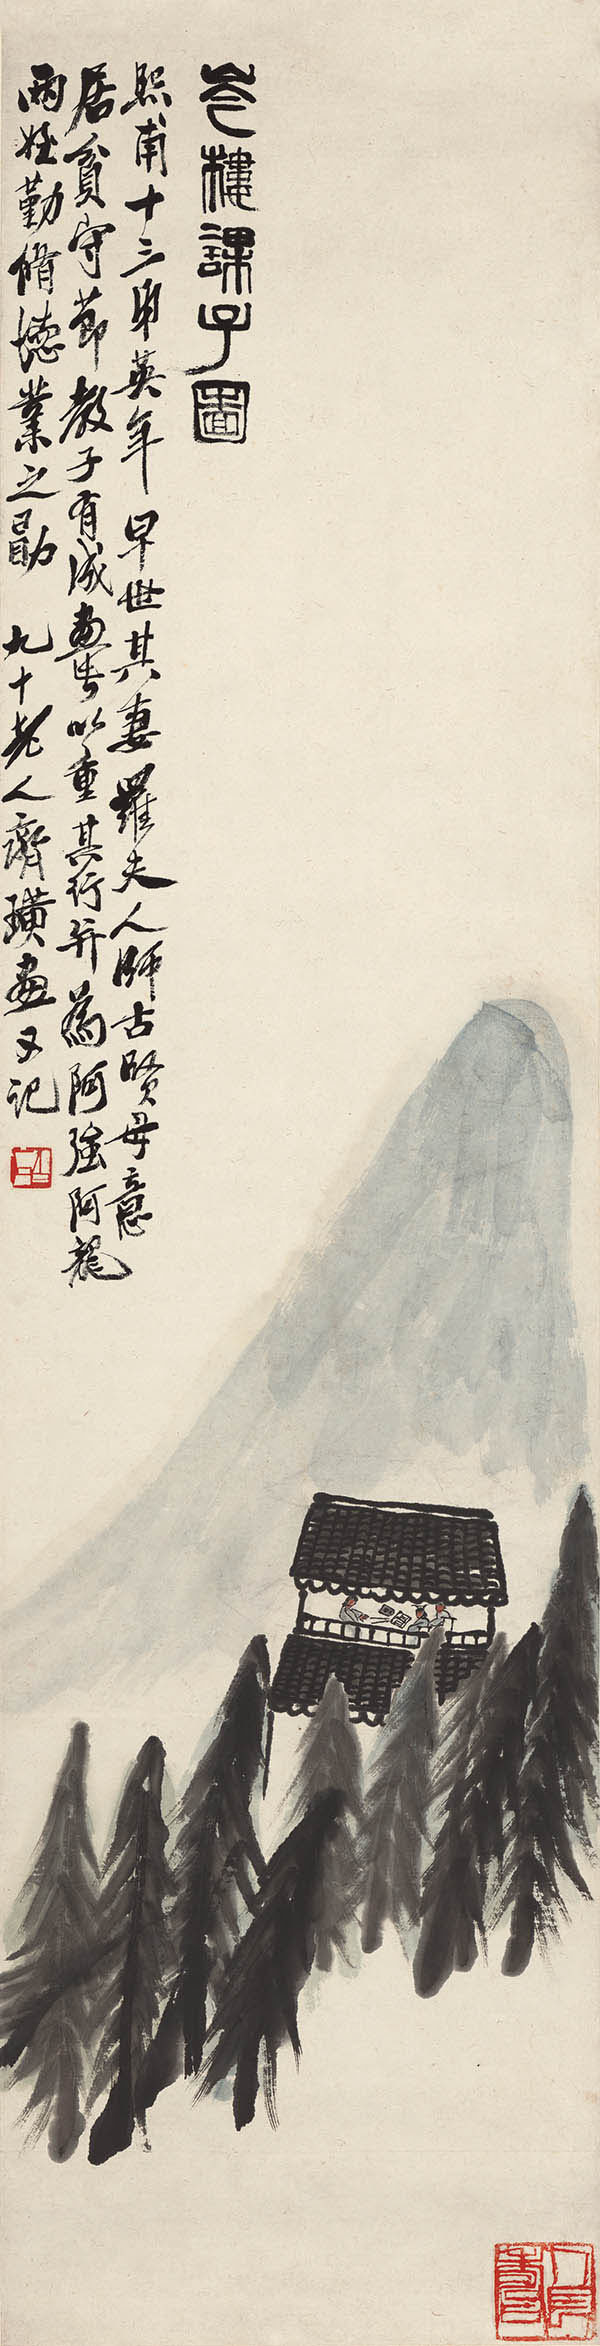 岑樓課子圖
熙甫十三弟英年早世其妻羅夫人師古賢母意
居貧守節教子有成畫此以重其行并為阿強阿龍
兩姪勤脩德業之勖 九十老人齊璜畫又記
人長壽